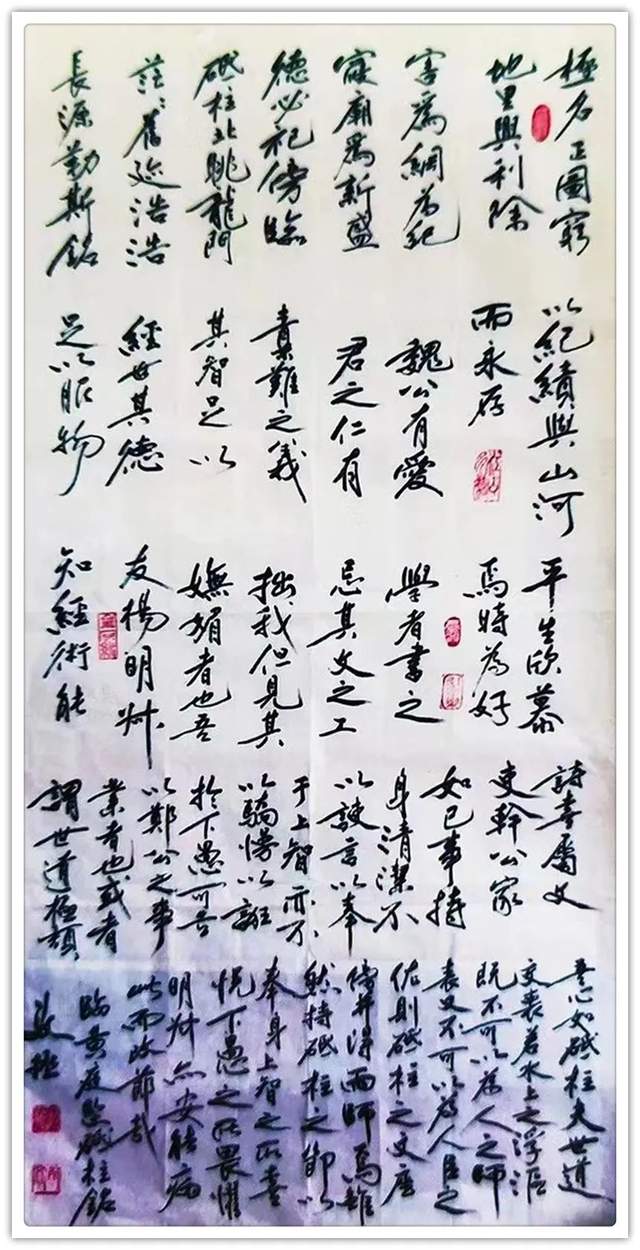 極名正圖窮
地里興利除
害為綱為紀
寢廟為新盛
德必祀傍臨
砥柱北眺龍門
茫〻舊跡浩浩
長源勒斯銘
以紀績與山河
而永存
魏公有愛
君之仁有
責難之義
其智足以
經世其德
足以服物
平生欣慕
焉時為好
學者書之
忘其文之工
拙我但見其
嫵媚者也吾
友楊明叔
知經術能
詩喜屬文
吏幹公家
如已事持
身清潔不
以諛言以奉
于上智亦不
以驕慢以誑
於下愚可告
以鄭公之事
業者也或者
謂世道極頹
吾心如砥柱夫世道
交喪若水上之浮漚
既不可以為人之師
表又不可以為人臣之
佐則砥柱之文座
傍并得兩師焉雖
然持砥柱之節以
奉身上智之所喜
悅下愚之所畏懼
明叔亦安能病
此而改節哉
臨黃庭堅砥柱銘